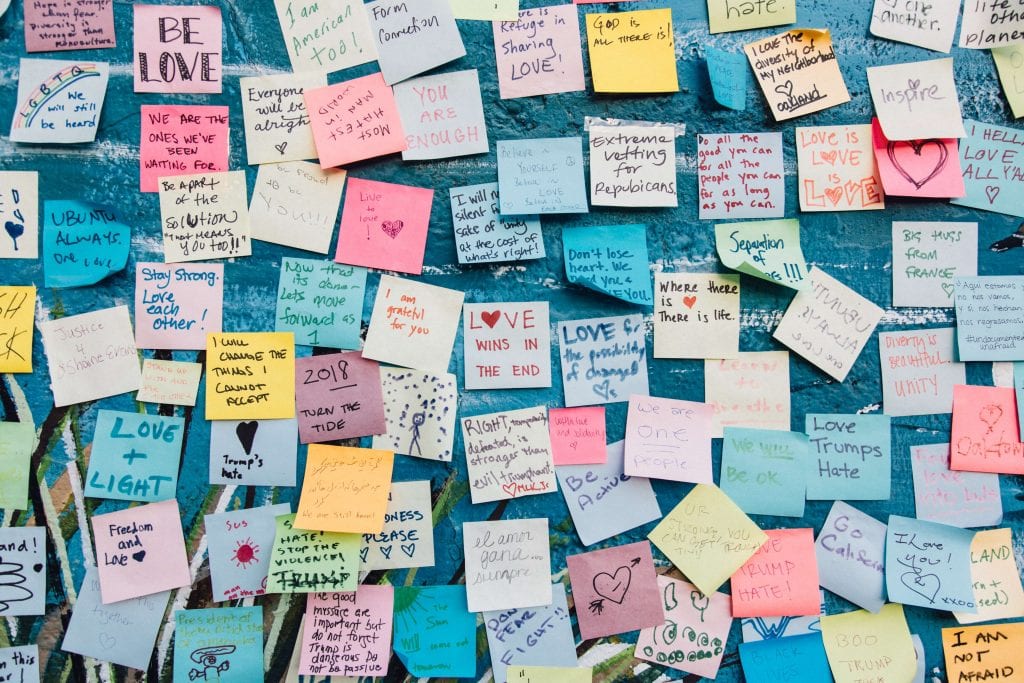 Hope is stronger
than fear.
Diversity is
stronger than
monoculture.
BE
LOVE
I am
American
too!
Form
Connection
Refuge in
Sharing
LOVE!
GOD IS
ALL THERE IS!
hate.
I LOVE THE
DIVERSITY OF
MY NEIGHBORHOOD
oakland
one
another.
life on
other
planets
LGBTQ
We
will still
be heard
WE ARE THE
ONES WE'VE
BEEN
WAITING FOR.
Everyone
will be
alright
MOST
HATEST
MAN IN
WORLD
YOU
ARE
ENOUGH
BELIEVE IN
YOURSELF
Believe
IN LOVE
Extreme
vetting
for
Repubicans.
Do all the
good you can
for all the
people you can
for as long
as you can.
LOVE IS
LOVE IS
LOVE
Inspire
I HELLA
LOVE
ALL Y'ALL
UBUNTU
ALWAYS.
One Love
Be APART
of the
SOLUTION
"THAT MEANS
YOU TOO!!"
be proud
to be
YOU!!!!
Live
to
love!
I will no
silent
sake of unity
at the cost of
what's right!
Don't lose
heart. We
need you &
LOVE YOU.
Separation
of
!!!
BIG HUGS
FROM
FRANCE
"Aqui estamos y
no nos vamos,
y si nos hechan
nos regrasamos"
#undocumented
unafraid
Stay Strong.
Love
each other!
Now that
its done-
Lets move
forward as
1
I am
grateful
for you
WHERE THERE
IS
THERE IS LIFE.
UBUNTU
ALWAYS
one love
Justice
4
I WILL
CHANGE THE
THINGS I
CANNOT
ACCEPT
STAND UP
WITH AND
LOVE
WINS IN
THE END
LOVE for
the possibility
of change!
DIVERSITY IS
Beautiful
UNITY
2018
TURN THE
TIDE
Learn to
Breathe
LOVE
+
LIGHT
Trump's
hate
RIGHT, temporarily
defeated, is
stronger than
evil triumphant.
MLK Jr.
We are
ONE
people
We will
Be OK
Love
Trumps
Hate
Oakland
Be
Active
We are Still here!
Freedom
and
Love
SUS
MAN ON THE
HATE!
STOP THE
VIOLENCE!
Trump
KINDNESS
PLEASE
el amor
gana
siempre
UR
STRONG. YOU
CAN GET THROUGH
THIS!
LOVE
TRUMP
HATE!
Go
California
I Love
you!
xxoo
LAND
and!
together
The Good
messages are
important but
do not forget
Trump is
dangerous Do
not be passive
The
Sun
Will
come out
tomorrow
DON'T
FEAR
FIGHT!!
BOO
TRUMP
I AM
NOT
AFRAID
President of